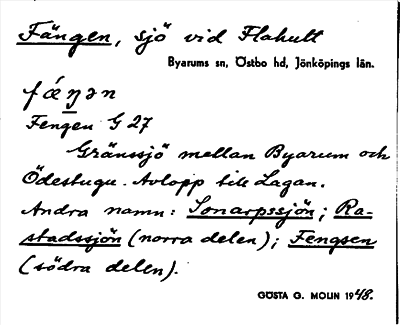 Fängen, sjö vid Flahult
Byarums sn, Östbo hd, Jönköpings län.
fǽŋən
Fengen G 27
Gränssjö mellan Byarum och
Ödestugu. Avlopp till Lagan.
Andra namn: Sonarpssjön; Ra-
stadssjön (norra delen); Fengsen
(södra delen).
GÖSTA G. MOLIN 1948.